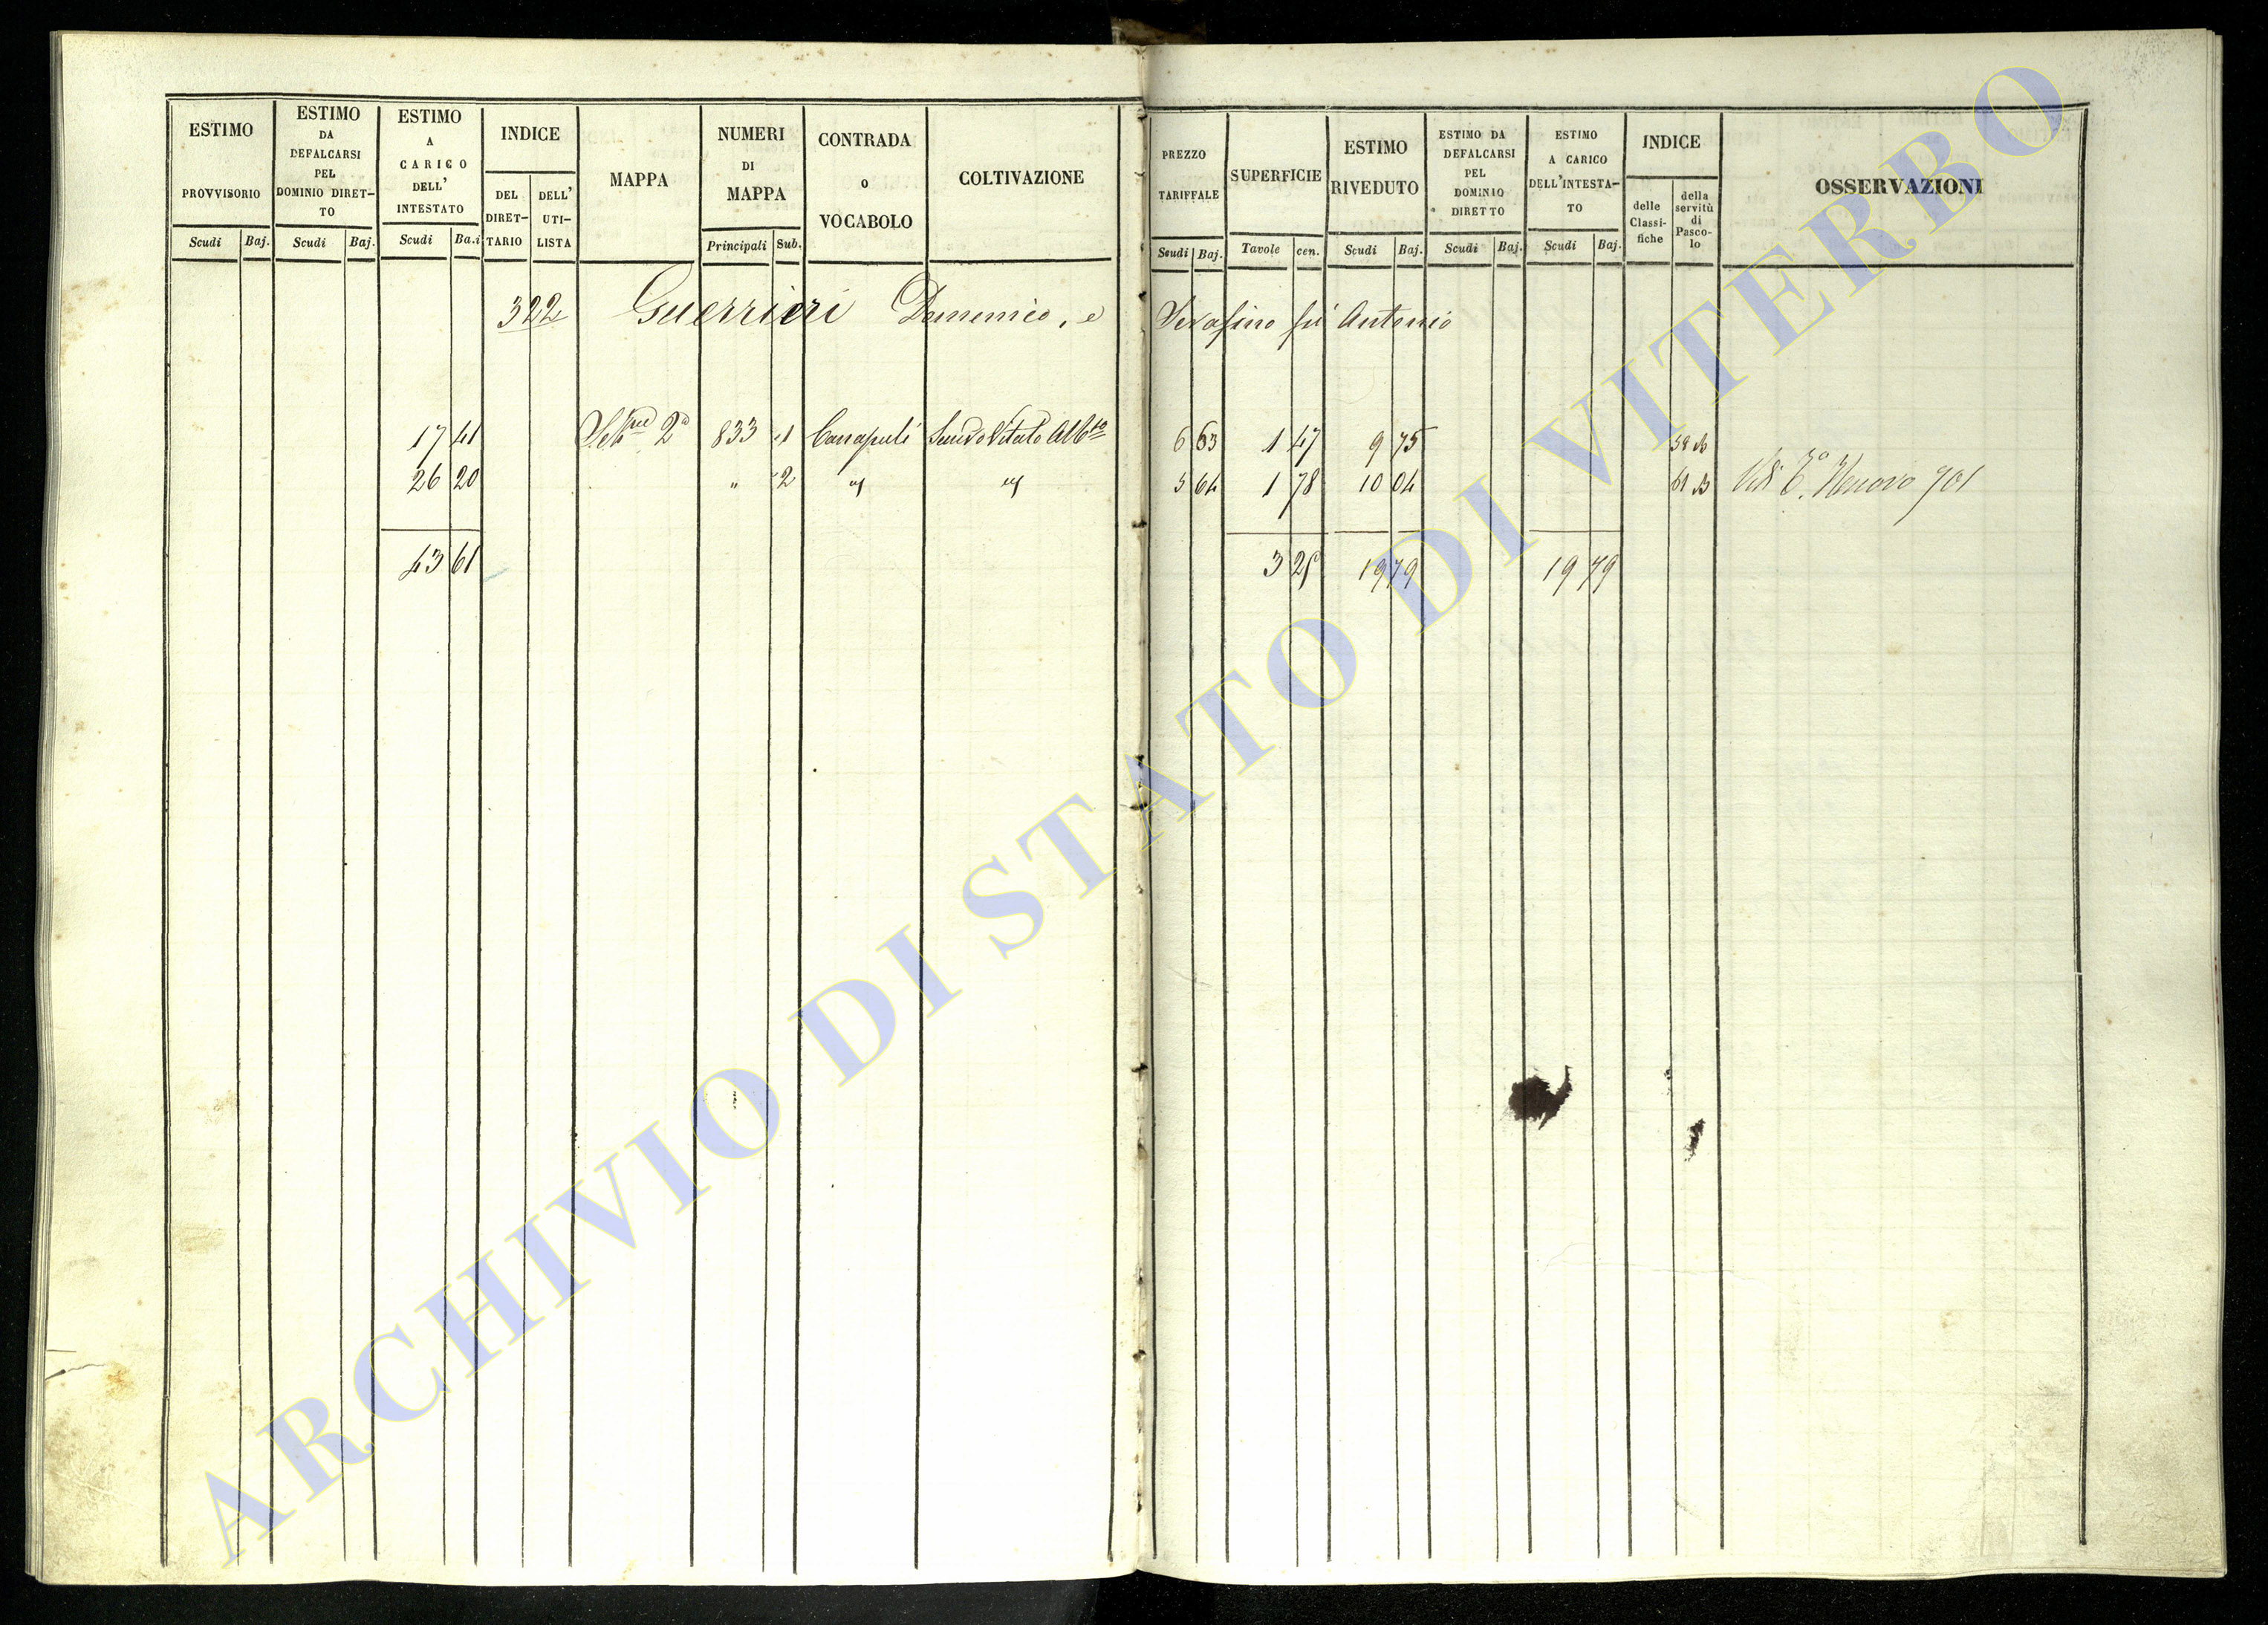 ESTIMO PROVVISORIO
Scudi Baj.
ESTIMO DA DEFALCARSI PEL DOMINIO DIRET-TO
Scudi Baj.
ESTIMO A CARICO DELL' INTESTATO
Scudi Ba.i
INDICE
DEL DIRET-TARIO
DELL' UTI-LISTA
MAPPA
NUMERI DI MAPPA
Principali Sub.
CONTRADA O VOCABOLO
COLTIVAZIONE
PREZZO TARIFFALE
Scudi Baj.
SUPERFICIE
Tavole cen.
ESTIMO RIVEDUTO
Scudi Baj.
ESTIMO DA DEFALCARSI PEL DOMINIO DIRETTO
Scudi Baj.
ESTIMO A CARICO DELL'INTESTA-TO
Scudi Baj.
INDICE
delle Classi-fiche
della servitù di Pasco-lo
OSSERVAZIONI
322 Guerrieri Domenico, e Serafino fu Antonio
17 41 2ª 833 1 Canapuli 6 63 1 47 9 75
26 20 " 2 " " 5 64 1 78 10 04 Nuovo 901
43 61 3 25 19 79 19 79
ARCHIVIO DI STATO DI VITERBO